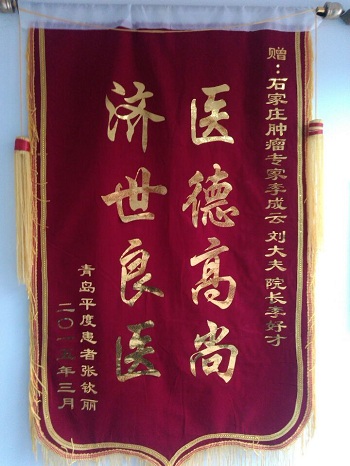 赠：石家庄肿瘤专家李成云 刘大夫 院长李好才
医德高尚
济世良医
青岛平度患者张钦丽
二〇一五年三月